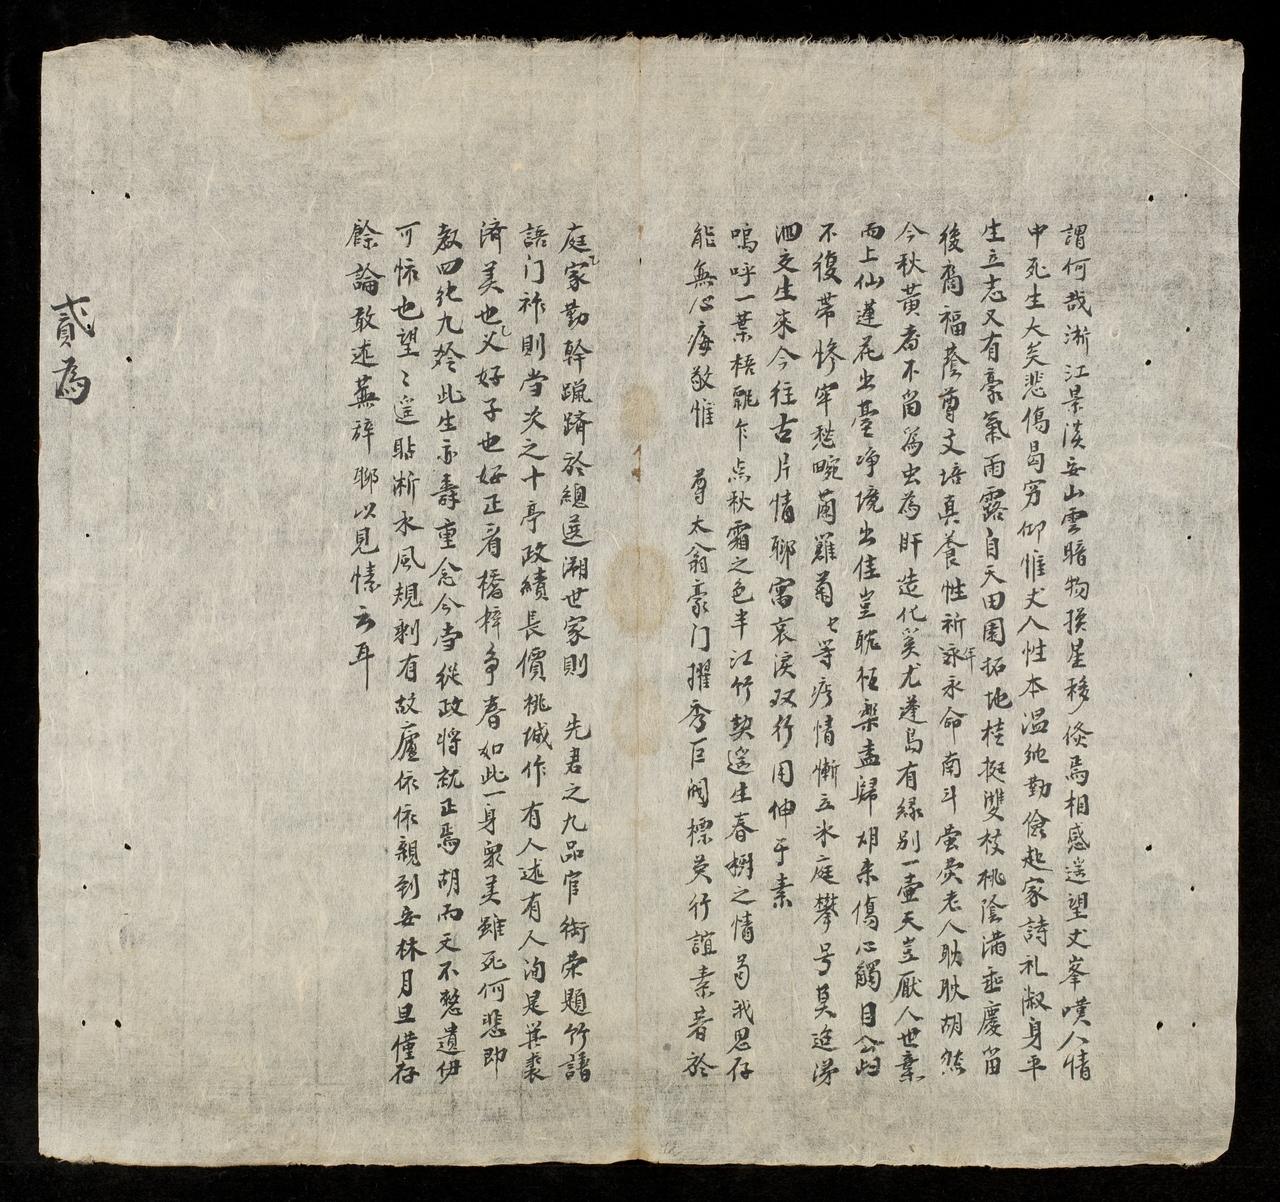 謂何哉淅江景淡安山雲暗物換星移倏焉相感遙望丈峯嘆人情
中死生大矣悲傷曷穷仰惟丈人性本温純勤儉起家詩礼淑身平
生立志又有豪氣雨露自天田園拓地桂挺雙枝桃陰滿亟慶留
後裔福蔭尊丈培真養性祈年永命南斗熒熒老人耿耿胡然
今秋黃耇不留為虫為肝造化奚尤蓬島有緑別一壺天豈厭人世棄
而上仙蓮花出臺净境出佳豈耽栢槃盍歸胡来傷心觸目
不復帶惨牢愁畹蘭籬菊等疚情慚立氷庭攀号莫追涕
泗交生来今往古片情聊寓哀淚双行用伸于素
嗚呼一葉梧飄乍点秋霜之色半江竹契遥生春樹之情苟我思存
能無心痗敬惟 尊太翁豪门擢秀巨阀標英行誼素著於
庭家勤幹躐躋於總選溯世家則 先君之九品官銜荣題竹譜
語门祚則当次之十亭政績長價桃城作有人述有人洵是箕裘
済美也父好子也好正看橋梓争春如此一身衆美雖死何悲即
数四純九齡此生亦壽重念今高從政将就正焉胡而天不憖遺伊
可怀也望〻遥貼淅水風規剩有故廬依依親到安林月旦僅存
餘論敢述蕪辞聊以見愫云耳
貳為